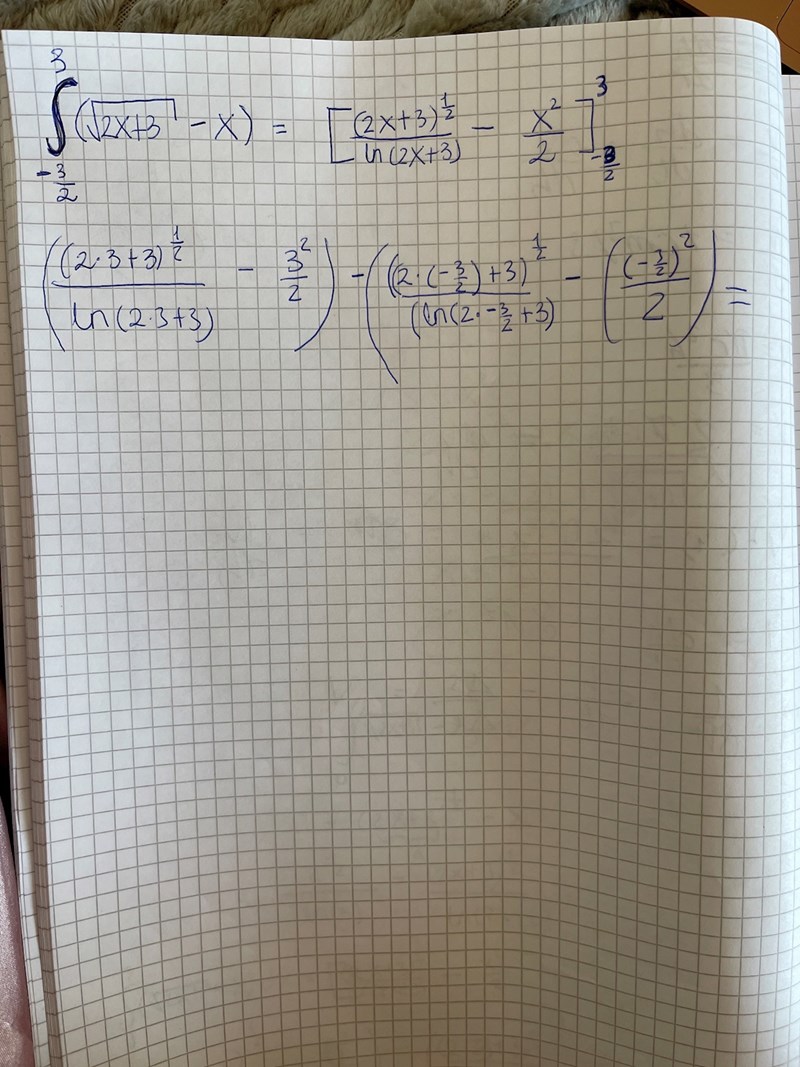 ∫_{-3/2}^{3} (√(2x+3) - x) = [ (2x+3)^{1/2} / ln(2x+3) - x^2/2 ]_{-3/2}^{3}
( (2·3+3)^{1/2} / ln(2·3+3) - 3^2/2 ) - ( ((2·(-3/2)+3)^{1/2} / (ln(2·-3/2+3) - ( (-3/2)^2 / 2 ) =